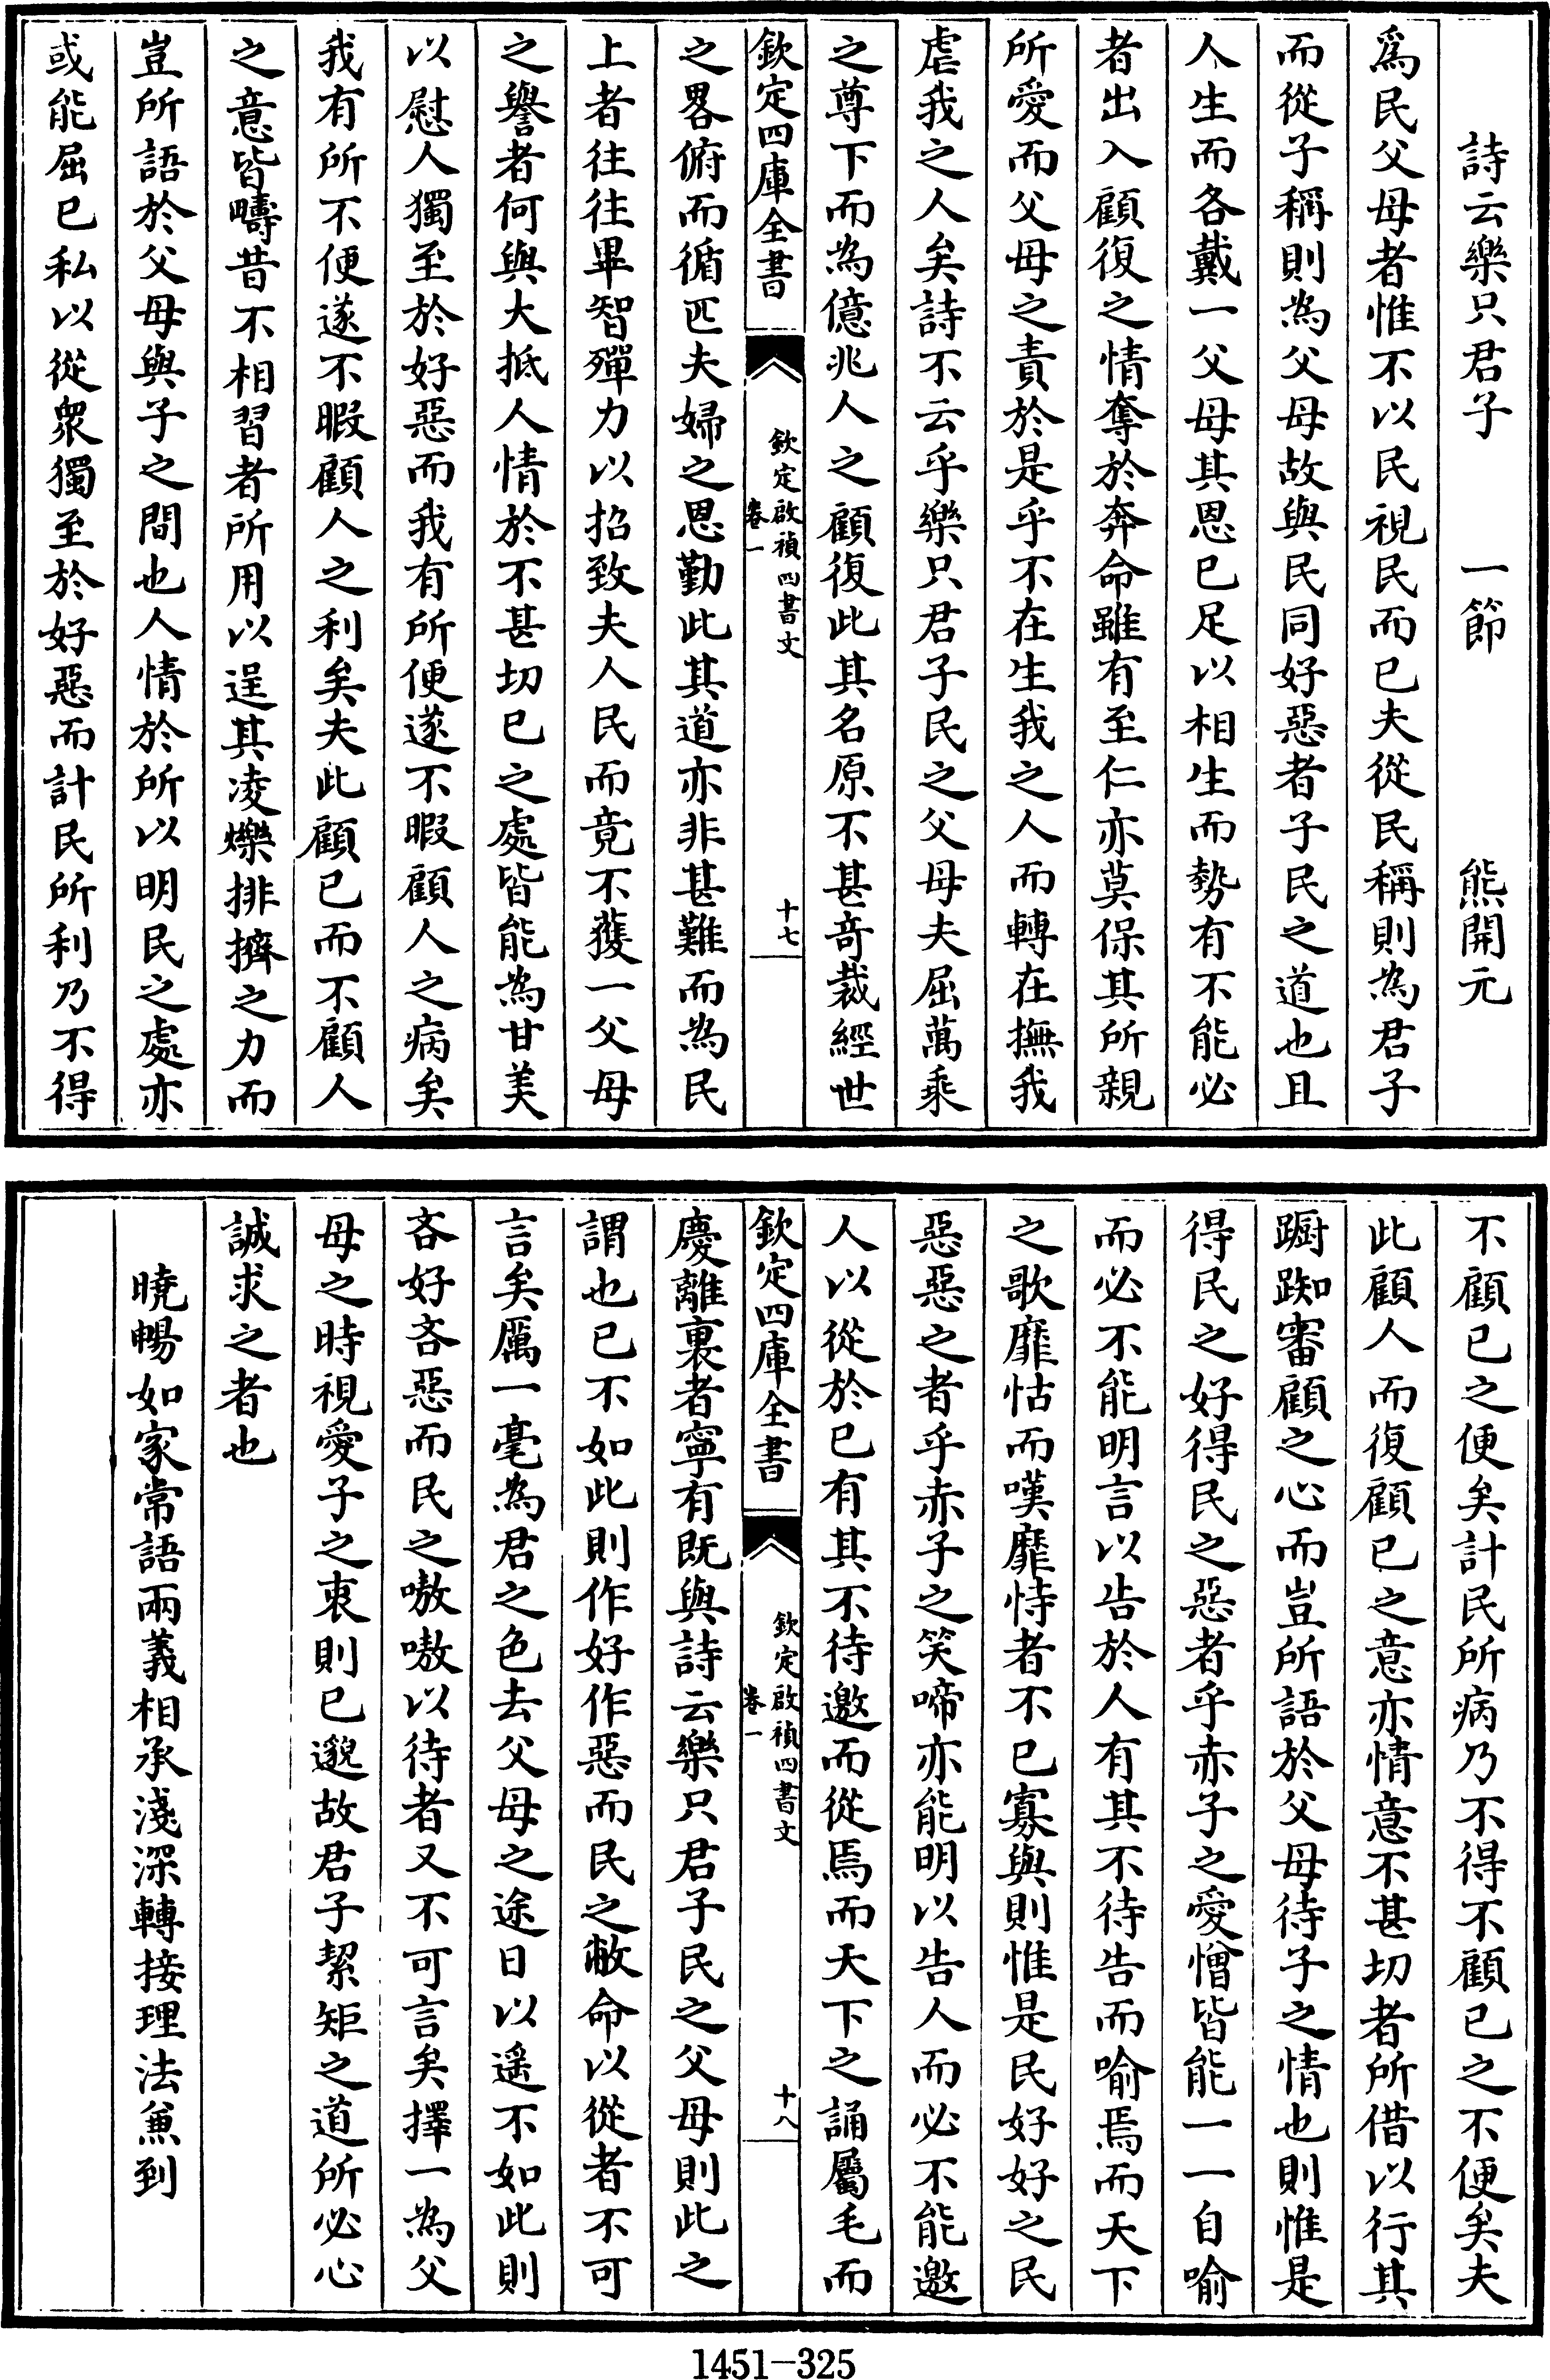 詩云樂只君子　一節　熊開元
為民父母者惟不以民視民而已夫從民稱則為君子
而從子稱則為父母故與民同好惡者子民之道也且
人生而各戴一父母其恩已足以相生而勢有不能必
者出入顧復之情奪於奔命雖有至仁亦莫保其所親
所愛而父母之責於是乎不在生我之人而轉在撫我
虐我之人矣詩不云乎樂只君子民之父母夫屈萬乘
之尊下而為億兆人之顧復此其名原不甚竒裁經世
欽定四庫全書
欽定啟禎四書文
卷一
十七
之畧俯而循匹夫婦之恩勤此其道亦非甚難而為民
上者往往畢智殫力以招致夫人民而竟不獲一父母
之譽者何與大抵人情於不甚切已之處皆能為甘美
以慰人獨至於好惡而我有所便遂不暇顧人之病矣
我有所不便遂不暇顧人之利矣夫此顧已而不顧人
之意皆疇昔不相習者所用以逞其凌爍排擠之力而
豈所語於父母與子之間也人情於所以明民之處亦
或能屈已私以從衆獨至於好惡而計民所利乃不得
不顧已之便矣計民所病乃不得不顧已之不便矣夫
此顧人而復顧已之意亦情意不甚切者所借以行其
踟蹰審顧之心而豈所語於父母待子之情也則惟是
得民之好得民之惡者乎赤子之愛憎皆能一一自喻
而必不能明言以告於人有其不待告而喻焉而天下
之歌靡怙而嘆靡恃者不已寡與則惟是民好好之民
惡惡之者乎赤子之笑啼亦能明以告人而必不能邀
人以從於已有其不待邀而從焉而天下之誦屬毛而
欽定四庫全書
欽定啟禎四書文
卷一
十八
慶離裏者寧有既與詩云樂只君子民之父母則此之
謂也已不如此則作好作惡而民之敝命以從者不可
言矣厲一毫為君之色去父母之途日以遥不如此則
吝好吝惡而民之嗷嗷以待者又不可言矣擇一為父
母之時視愛子之衷則已邈故君子絜矩之道所必心
誠求之者也
曉暢如家常語兩義相承淺深轉接理法兼到
1451-325